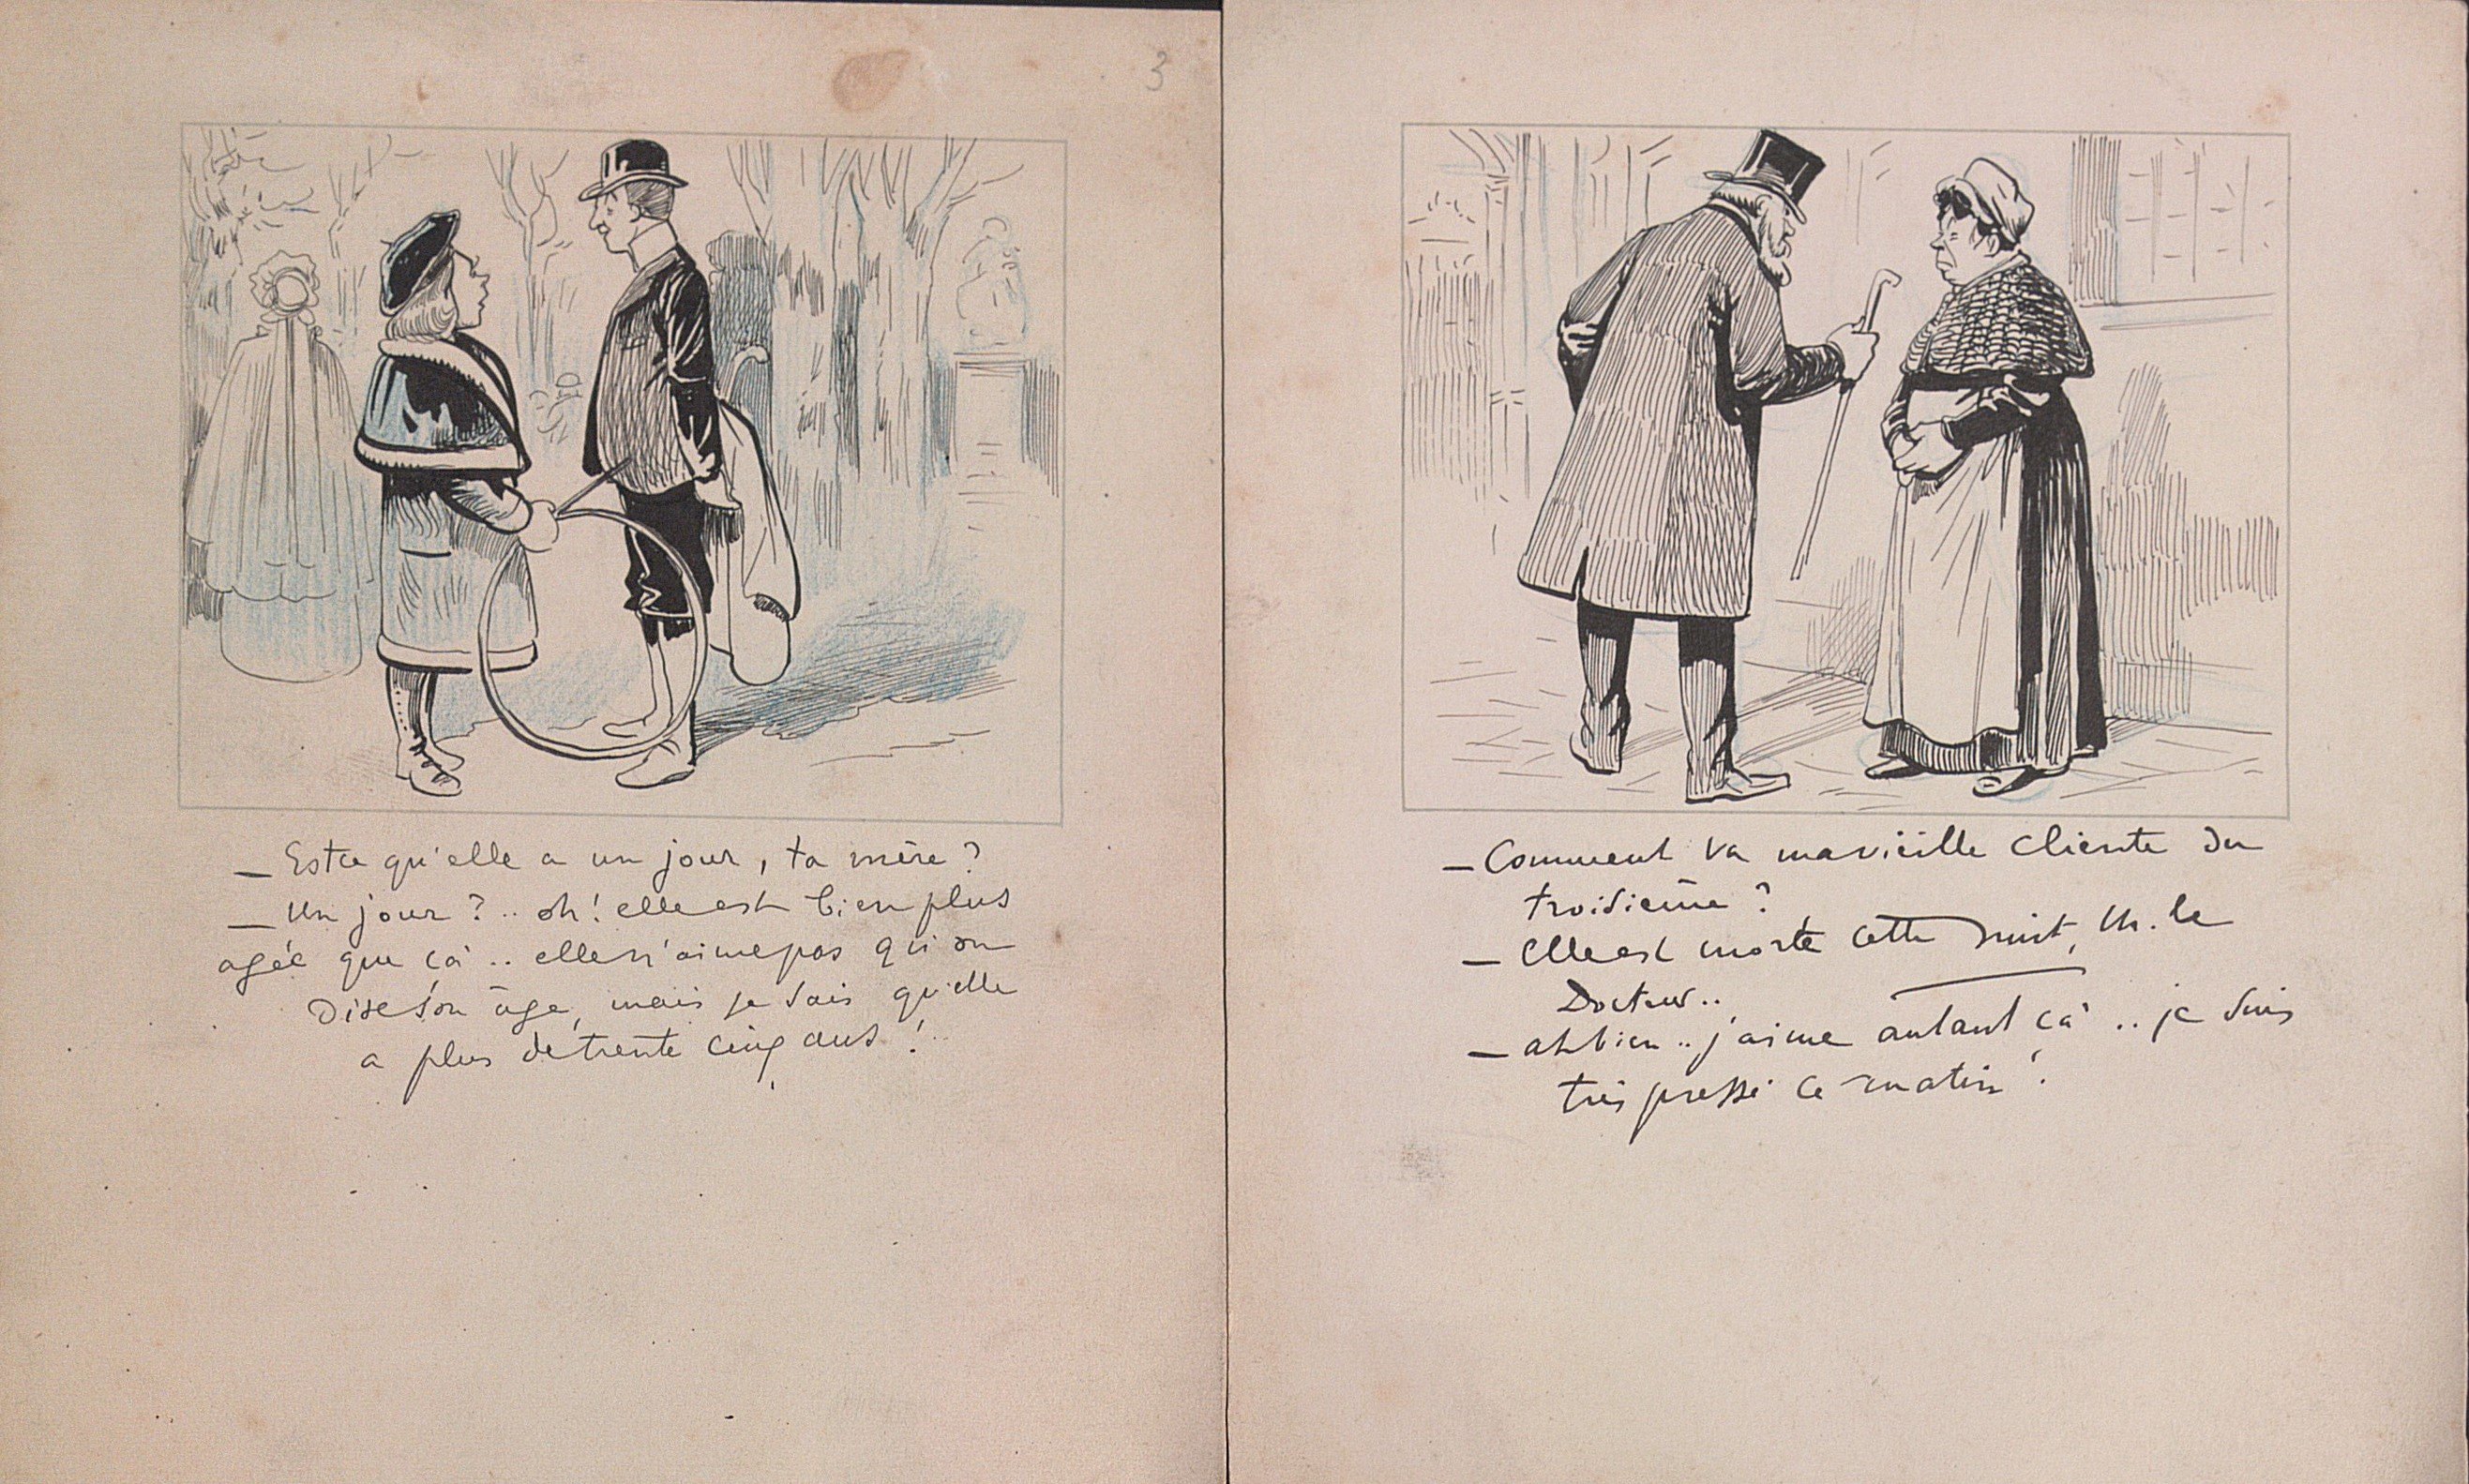 3
— Estce qu'elle a un jour, ta mère?
— Un jour?.. oh! elle est bien plus
agée que ça.. elle n'aime pas qu'on
dise son âge, mais je sais qu'elle
a plus de trente cinq ans!
— Comment va ma vieille cliente du
troisième?
— Elle est morte cette nuit, M. le
Docteur..
— ah bien.. j'aime autant ça.. je suis
très pressé ce matin!